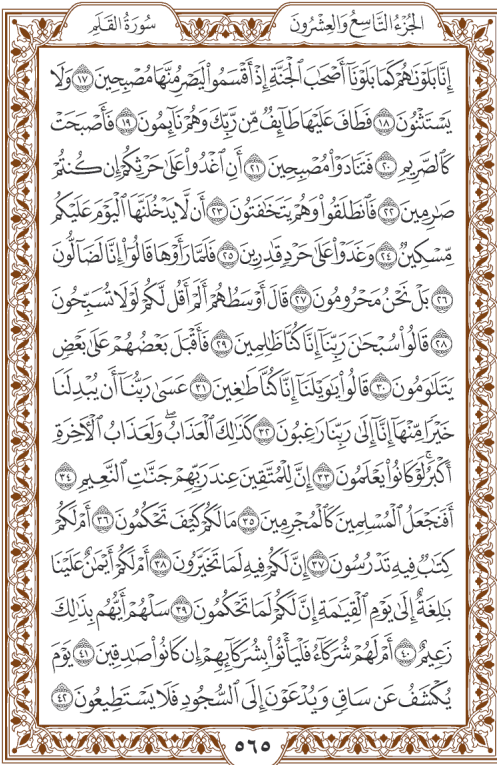 الجُزْءُ التَّاسِعُ وَالعِشْرُونَ سُورَةُ القَلَمِ
إِنَّا بَلَوْنَٰهُمْ كَمَا بَلَوْنَآ أَصْحَٰبَ ٱلْجَنَّةِ إِذْ أَقْسَمُوا۟ لَيَصْرِمُنَّهَا مُصْبِحِينَ ١٧ وَلَا
يَسْتَثْنُونَ ١٨ فَطَافَ عَلَيْهَا طَآئِفٌ مِّن رَّبِّكَ وَهُمْ نَآئِمُونَ ١٩ فَأَصْبَحَتْ
كَٱلصَّرِيمِ ٢٠ فَتَنَادَوْا۟ مُصْبِحِينَ ٢١ أَنِ ٱغْدُوا۟ عَلَىٰ حَرْثِكُمْ إِن كُنتُمْ
صَٰرِمِينَ ٢٢ فَٱنطَلَقُوا۟ وَهُمْ يَتَخَٰفَتُونَ ٢٣ أَن لَّا يَدْخُلَنَّهَا ٱلْيَوْمَ عَلَيْكُم
مِّسْكِينٌ ٢٤ وَغَدَوْا۟ عَلَىٰ حَرْدٍ قَٰدِرِينَ ٢٥ فَلَمَّا رَأَوْهَا قَالُوٓا۟ إِنَّا لَضَآلُّونَ
٢٦ بَلْ نَحْنُ مَحْرُومُونَ ٢٧ قَالَ أَوْسَطُهُمْ أَلَمْ أَقُل لَّكُمْ لَوْلَا تُسَبِّحُونَ
٢٨ قَالُوا۟ سُبْحَٰنَ رَبِّنَآ إِنَّا كُنَّا ظَٰلِمِينَ ٢٩ فَأَقْبَلَ بَعْضُهُمْ عَلَىٰ بَعْضٍ
يَتَلَٰوَمُونَ ٣٠ قَالُوا۟ يَٰوَيْلَنَآ إِنَّا كُنَّا طَٰغِينَ ٣١ عَسَىٰ رَبُّنَآ أَن يُبْدِلَنَا
خَيْرًا مِّنْهَآ إِنَّآ إِلَىٰ رَبِّنَا رَٰغِبُونَ ٣٢ كَذَٰلِكَ ٱلْعَذَابُ ۖ وَلَعَذَابُ ٱلْءَاخِرَةِ
أَكْبَرُ ۚ لَوْ كَانُوا۟ يَعْلَمُونَ ٣٣ إِنَّ لِلْمُتَّقِينَ عِندَ رَبِّهِمْ جَنَّٰتِ ٱلنَّعِيمِ ٣٤
أَفَنَجْعَلُ ٱلْمُسْلِمِينَ كَٱلْمُجْرِمِينَ ٣٥ مَا لَكُمْ كَيْفَ تَحْكُمُونَ ٣٦ أَمْ لَكُمْ
كِتَٰبٌ فِيهِ تَدْرُسُونَ ٣٧ إِنَّ لَكُمْ فِيهِ لَمَا تَخَيَّرُونَ ٣٨ أَمْ لَكُمْ أَيْمَٰنٌ عَلَيْنَا
بَٰلِغَةٌ إِلَىٰ يَوْمِ ٱلْقِيَٰمَةِ ۙ إِنَّ لَكُمْ لَمَا تَحْكُمُونَ ٣٩ سَلْهُمْ أَيُّهُم بِذَٰلِكَ
زَعِيمٌ ٤٠ أَمْ لَهُمْ شُرَكَآءُ فَلْيَأْتُوا۟ بِشُرَكَآئِهِمْ إِن كَانُوا۟ صَٰدِقِينَ ٤١ يَوْمَ
يُكْشَفُ عَن سَاقٍ وَيُدْعَوْنَ إِلَى ٱلسُّجُودِ فَلَا يَسْتَطِيعُونَ ٤٢
٥٦٥